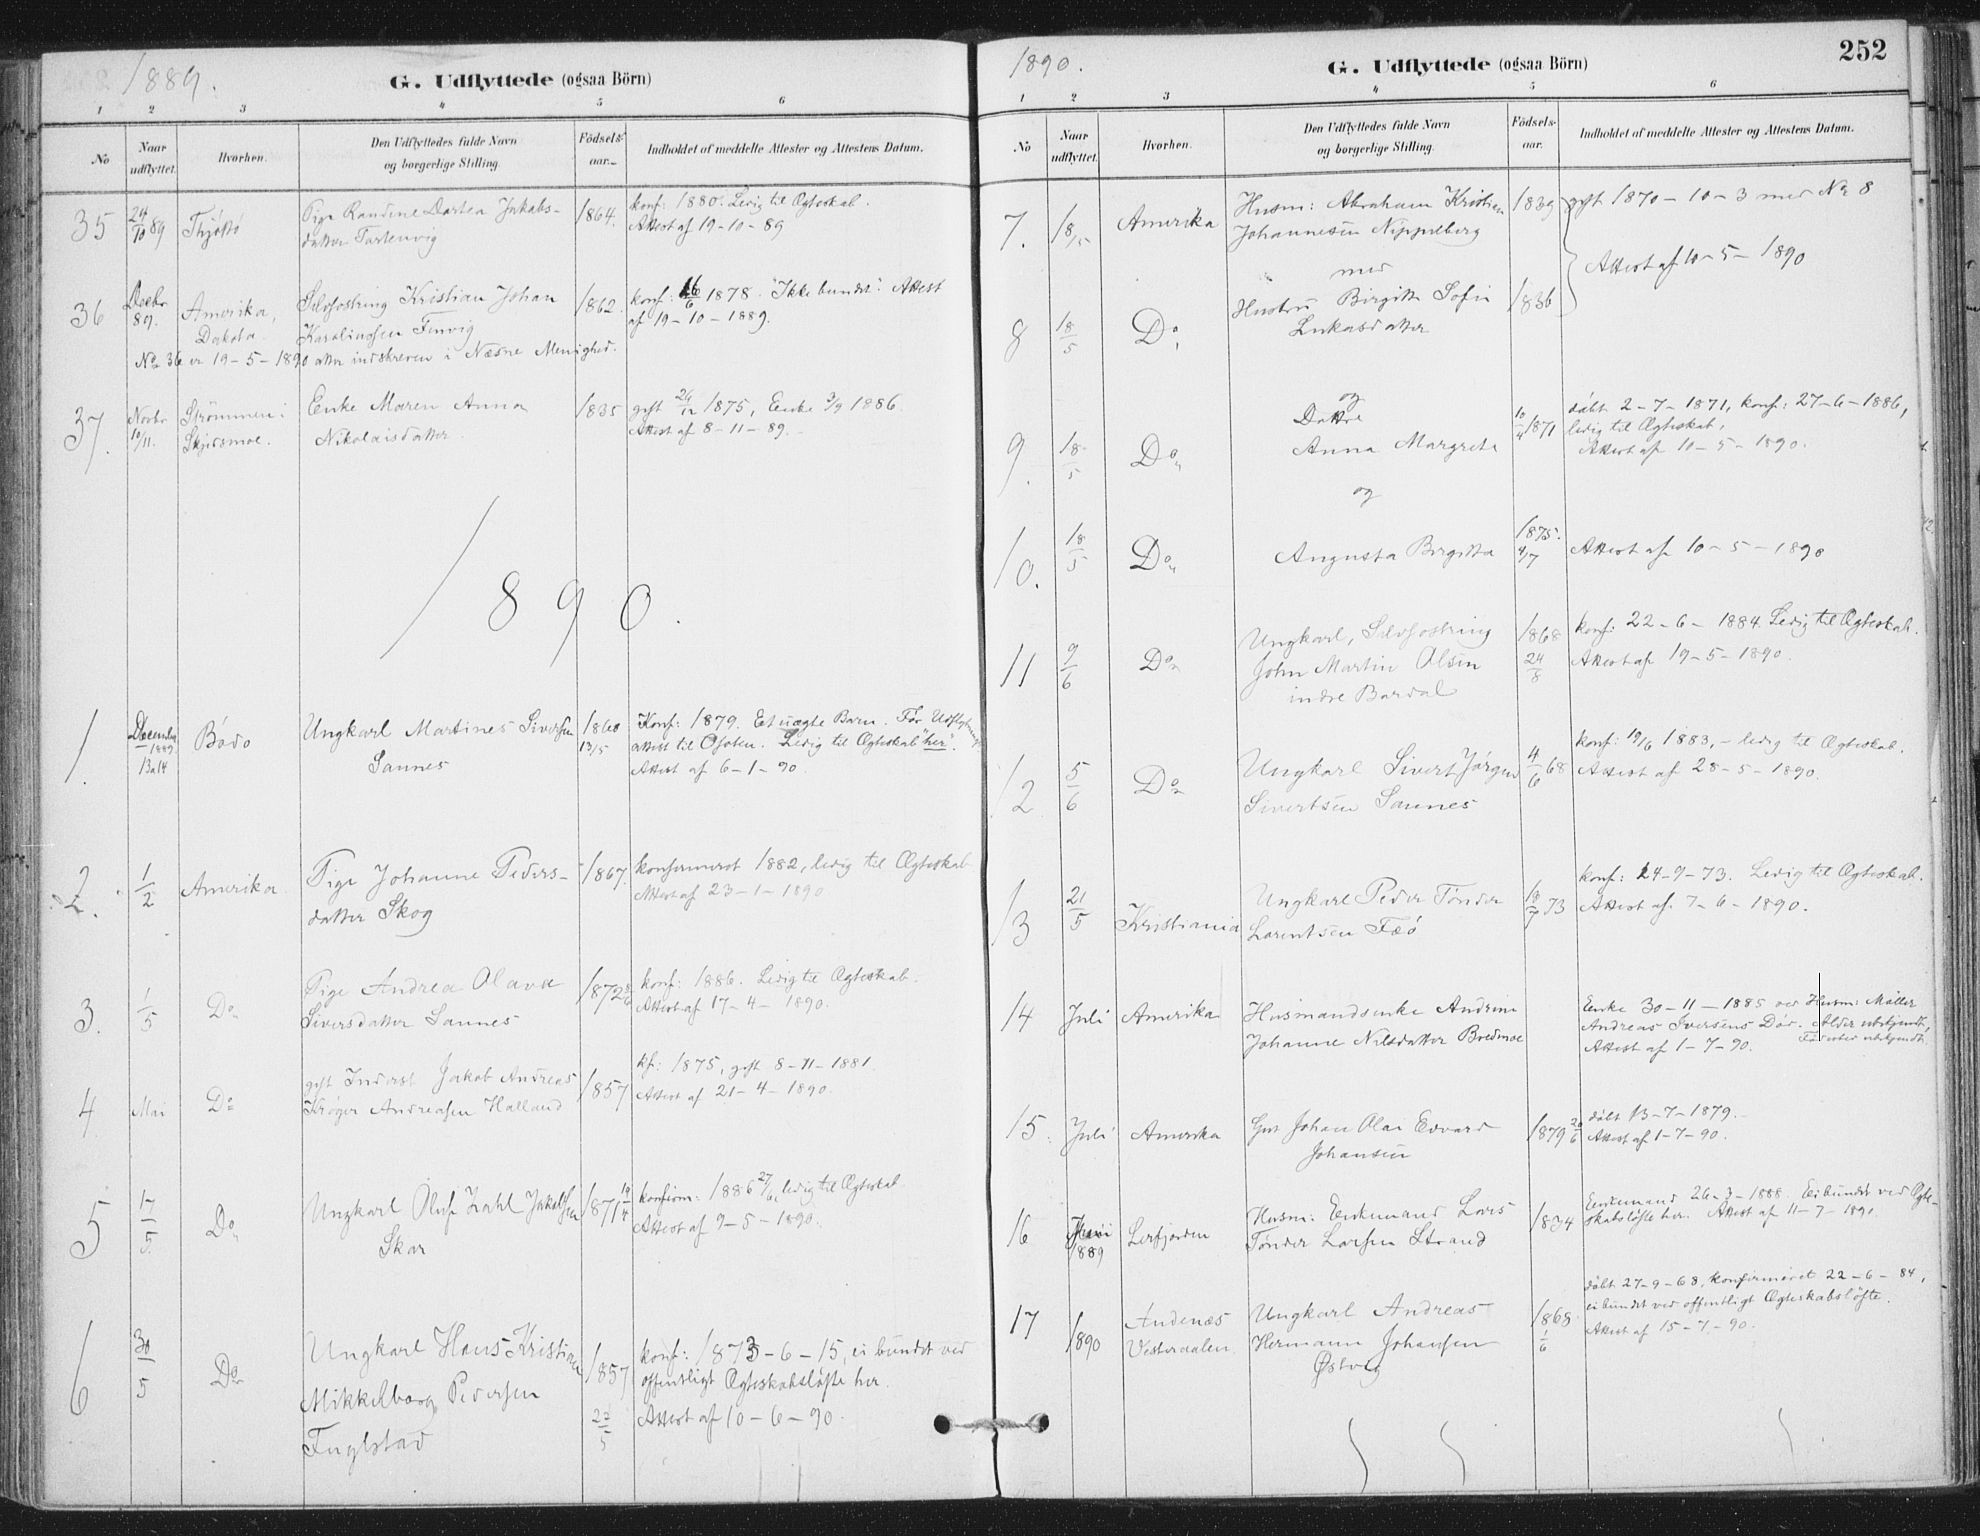 1889.
G. Udflyttede (ogsaa Börn)
1 2 3 4 5 6
No
Naar udflyttet.
Hvorhen.
Den Udflyttedes fulde Navn
og borgerlige Stilling.
Födsels-
aar.
Indholdet af meddelte Attester og Attestens Datum.
35 24/10 89 Thjøttø Pige Randine Dortea Jakobs- 1864. konf: 1880. Ledig til Ægteskab.
datter Forternvig Attest af 19-10-89
36 Decbr 89. Amerika, Selvfostring Kristian Johan 1862. konf: 16/6 1878. "Ikke bundet". Attest
Dakota. Karolinusen Finvig af 19-10-1889.
No 36 er 19-5-1890 atter indskreven i Næsne Menighed.
37. Novbr Strømmen i Enke Maren Anna 1835 gift 26/12 1875, Enke 3/9 1886
10/11. Skjersmoe. Nikolaisdatter. Attest af 8-11-89.
1890.
1. December 1889 Bodø Ungkarl Martines Siversen 1860 Konf: 1879. Et uægte Barn. Før Udflytnings
13 a 14 Sannes 13/5 attest til Ofoten. Ledig til Ægteskab "her".
Attest af 6-1-90.
2. 1/2 Amerika Pige Johanne Peders- 1867. konfirmeret 1882, ledig til Ægteskab
datter Skog Attest af 23-1-1890
3. 1/5 Do Pige Andrea Olava 1872 konf: 1886. Ledig til Ægteskab.
Siversdatter Sannes Attest af 17-4-1890.
4. Mai Do gift Inderst Jakob Andreas 1857 kf: 1875, gift 8-11-1881.
Krøger Andreasen Halland Attest af 21-4-1890.
5 17/5 Do Ungkarl Oluf Zahl Jakobsen 1871 19/4 konfirm: 1886 27/6, ledig til Ægteskab
Skar Attest af 9-5-1890.
6 30/5 Do Ungkarl Hans Kristian 1857 konf: 1873-6-15, ei bundet ved
Mikkelborg Pedersen 22/5 offentligt Ægteskabsløfte her.
Fuglstad Attest af 10-6-90.
1890.
G. Udflyttede (ogsaa Börn)
252
1 2 3 4 5 6
No
Naar
udflyttet.
Hvorhen.
Den Udflyttedes fulde Navn
og borgerlige Stilling.
Födsels-
aar.
Indholdet af meddelte Attester og Attestens Datum.
7. 18/5 Amerika Husm: Abraham Kristian 1839 gift 1870-10-3 med No 8
Johannesen Nippelberg
med Attest af 10-5-1890
8 18/5 Do Hustru Birgitte Sofie 1836
Lukasdatter
og
Datter
9. 18/5 Do Anna Margrete 10/4 1871 døbt 2-7-1871, konf: 27-6-1886,
ledig til Ægteskab,
Attest af 10-5-1890.
og
10. 18/5 Do Augusta Birgitta 1875. 4/7 Attest af 10-5-1890
11 9/6 Do Ungkarl, Selvfostring 1868 konf: 22-6-1884. Ledig til Ægteskab.
John Martin Olsen 24/8 Attest af 19-5-1890.
indre Bardal
12 5/6 Do Ungkarl Sivert Jørgen 4/6 68 konf: 19/6 1883, - ledig til Ægteskab.
Sivertsen Sannes Attest af 28-5-1890.
13 21/5 Kristiania Ungkarl Peder Tønder 73 konf: 24-9-73. Ledig til Ægteskab.
Lorentsen Fæø Attest af 7-6-1890.
14 Juli Amerika Husmandsenke Andrine Enke 30-11-1885 ved Husm: Møller
Johanne Nilsdatter Bredmoe Andreas Iversens Død. Alder ubekjendt,
Attest af 1-7-90. Fødested ubekjendt.
15. Juli Amerika Gut Johan Olai Edvard 1879 20/6 døbt 13-7-1879.
Johansen Attest af 1-7-90.
16 1889 Lerfjorden Husm: Enkemand Lars 1834 Enkemand 26-3-1888. Ei bundet ved Ægte-
Tønder Larsen Strand skabsløfte her. Attest af 11-7-1890.
17 1890 Andenæs Ungkarl Andreas 1868 døbt 27-9-68, konfirmeret 22-6-84,
Vesteraalen. Hermann Johansen 1/6 ei bundet ved offentligt Ægteskabsløfte.
Østvig Attest af 15-7-90.